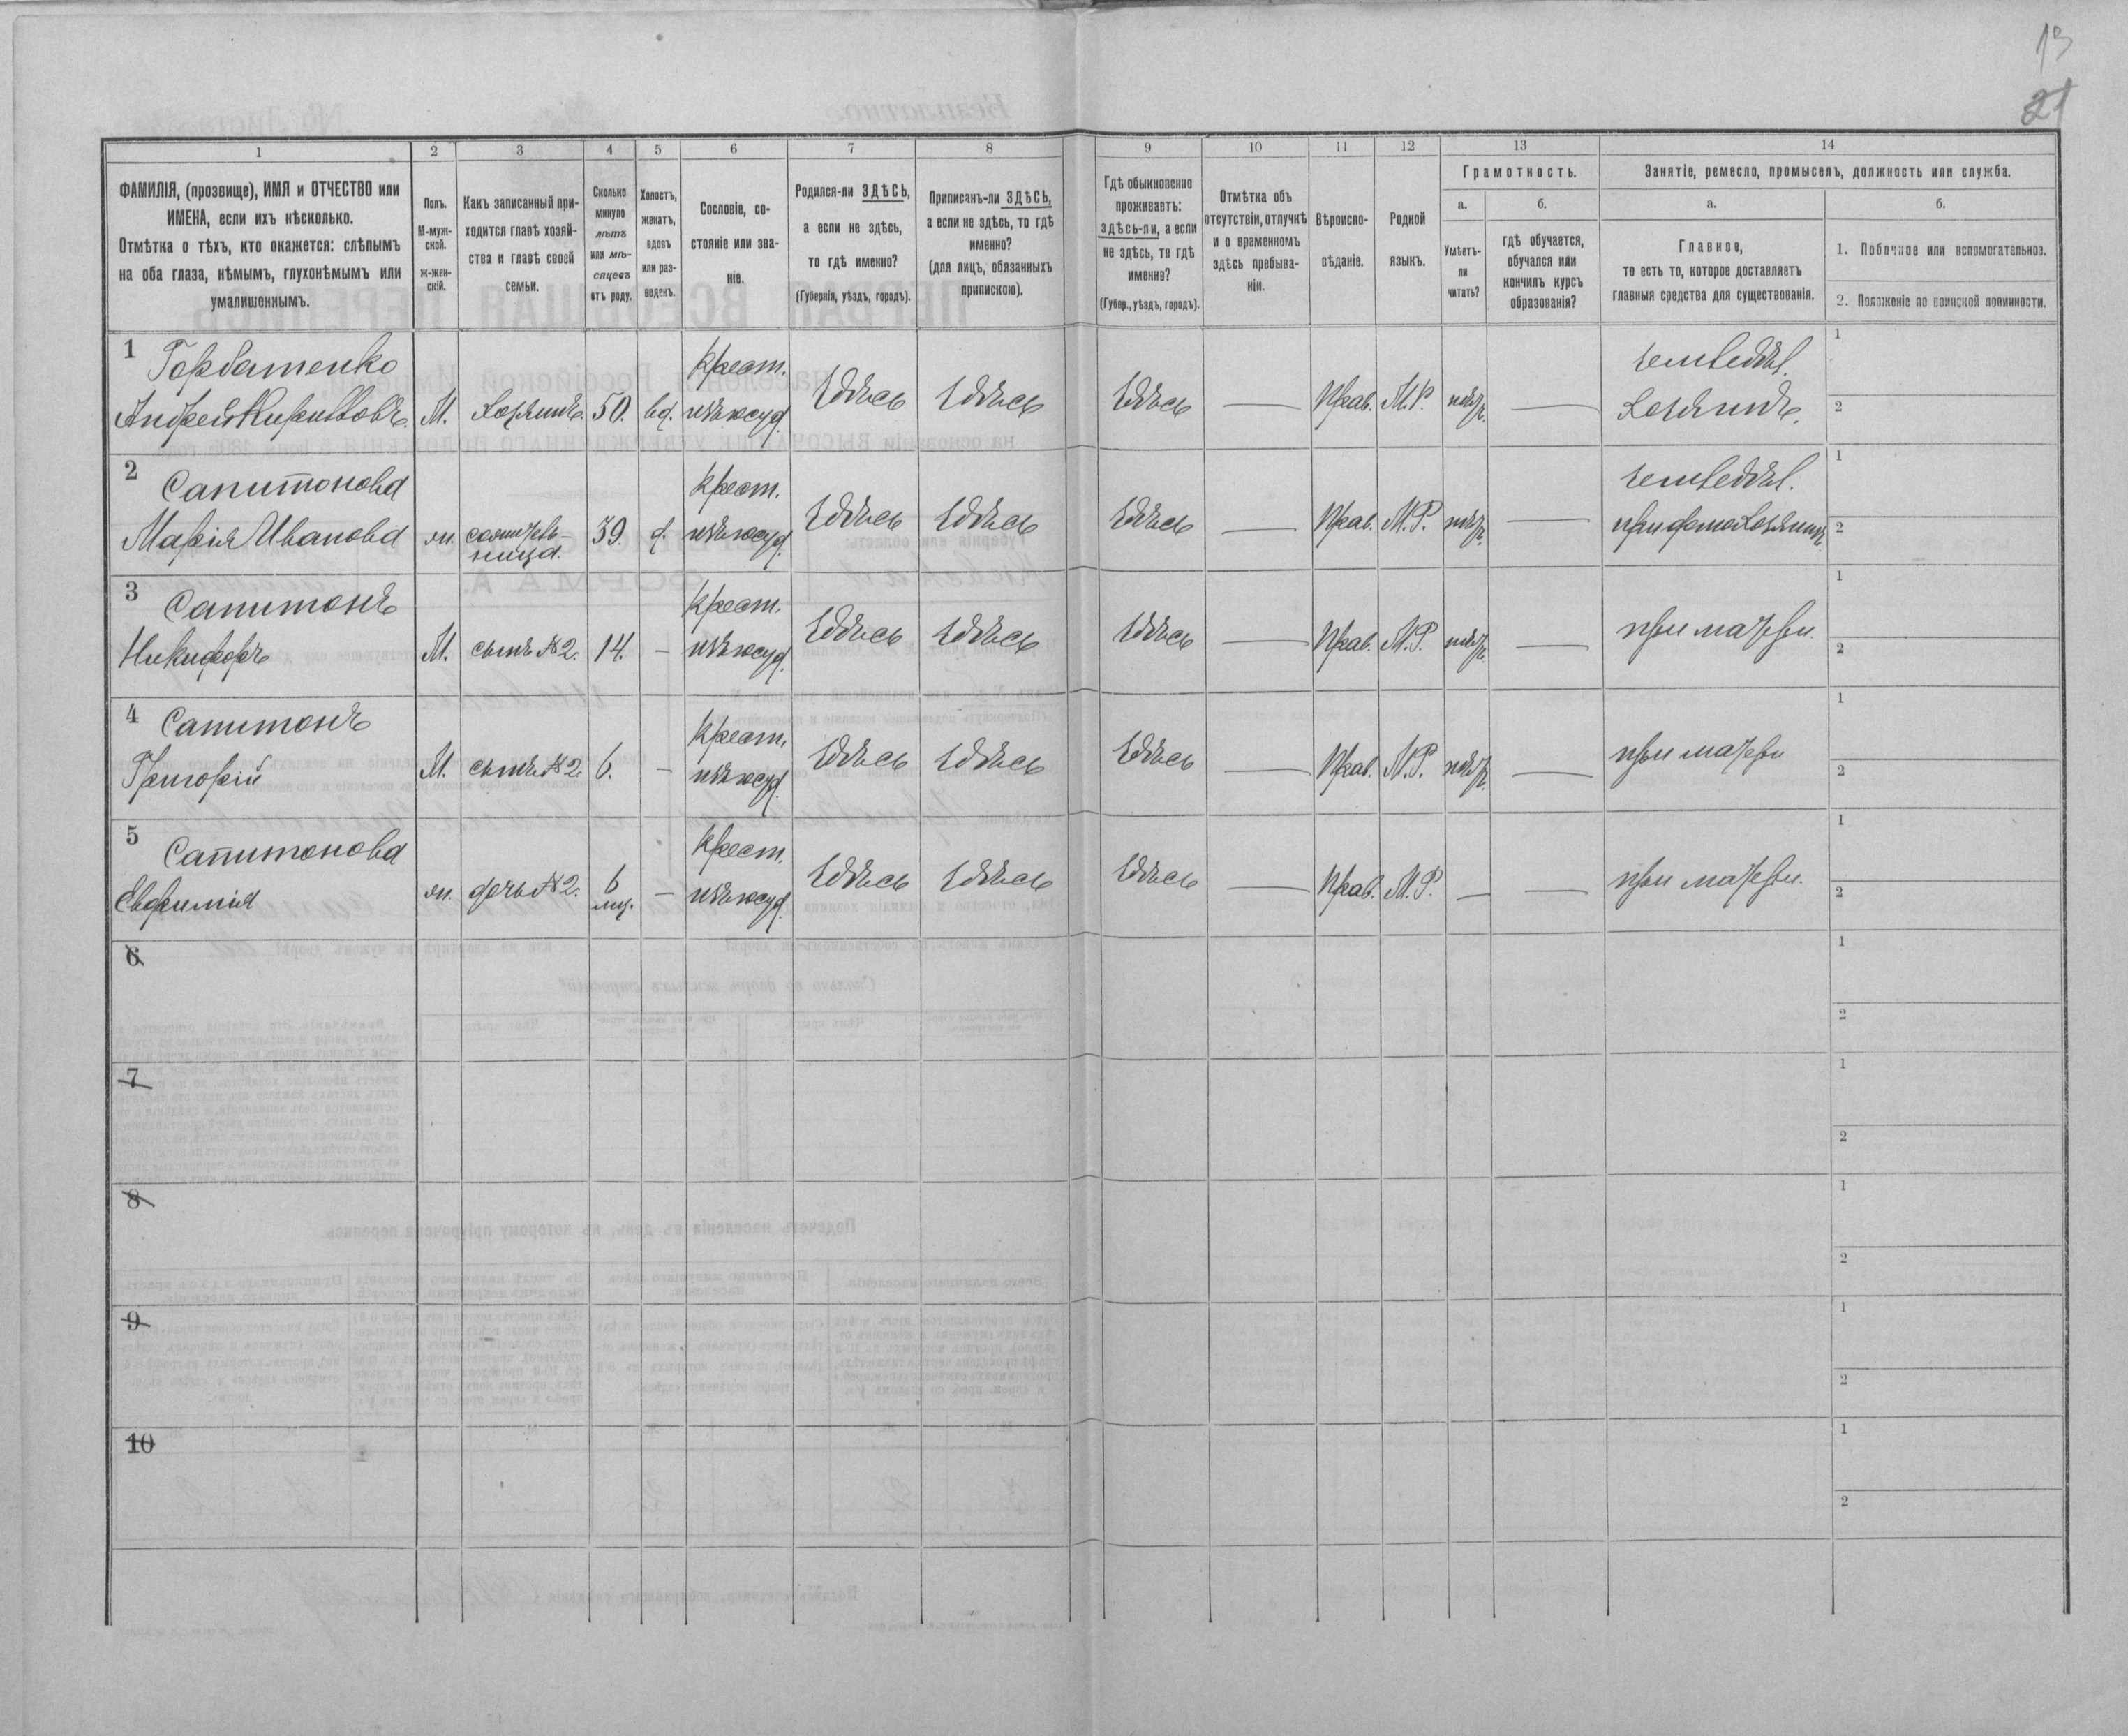 13
21
1 2 3 4 5 6 7 8 9 10 11 12 13 14
ФАМИЛІЯ, (прозвище), ИМЯ и ОТЧЕСТВО или
ИМЕНА, если ихъ нѣсколько.
Отмѣтка о тѣхъ, кто окажется: слѣпымъ
на оба глаза, нѣмымъ, глухонѣмымъ или
умалишоннымъ.
Полъ.
М-муж-
ской.
ж-жен-
скій.
Какъ записанный при-
ходится главѣ хозяй-
ства и главѣ своей
семьи.
Сколько
минуло
лѣтъ
или мѣ-
сяцевъ
отъ роду.
Холостъ,
женатъ,
вдовъ
или раз-
веденъ.
Сословіе, со-
стояніе или зва-
ніе.
Родился-ли ЗДѢСЬ,
а если не здѣсь,
то гдѣ именно?
(Губернія, уѣздъ, городъ).
Приписанъ-ли ЗДѢСЬ,
а если не здѣсь, то гдѣ
именно?
(для лицъ, обязанныхъ
припискою).
Гдѣ обыкновенно
проживаетъ:
здѣсь-ли, а если
не здѣсь, то гдѣ
именно?
(Губер., уѣздъ, городъ).
Отмѣтка объ
отсутствіи, отлучкѣ
и о временномъ
здѣсь пребыва-
ніи.
Вѣроиспо-
вѣданіе.
Родной
языкъ.
Грамотность.
а.
Умѣетъ-
ли
читать?
б.
гдѣ обучается,
обучался или
кончилъ курсъ
образованія?
Занятіе, ремесло, промыселъ, должность или служба.
а.
Главное,
то есть то, которое доставляетъ
главныя средства для существованія.
б.
1. Побочное или вспомогательное.
2. Положеніе по воинской повинности.
1 Горбатенко Крест. земледѣл. 1
Андрей Кирилловъ. М. Хозяинъ. 50. вд. изъ госуд. Здѣсь Здѣсь Здѣсь — Прав. М.Р. нѣтъ. — Хозяинъ. 2
2 Сапитонова Крест. земледѣл. 1
Марія Иванова ж. сожитель- 39. д. изъ госуд. Здѣсь Здѣсь Здѣсь — Прав. М.Р. нѣтъ. — 2
ница.
3 Сапитонъ Крест. 1
Никифоръ М. сынъ №2. 14. — изъ госуд. Здѣсь Здѣсь Здѣсь — Прав. М.Р. нѣтъ. — при матери. 2
4 Сапитонъ Крест. 1
Григорій М. сынъ №2 6. — изъ госуд. Здѣсь Здѣсь Здѣсь — Прав. М.Р. нѣтъ. — при матери 2
5 Сапитонова Крест. 1
Евфимія ж. дочь №2. 6 — изъ госуд. Здѣсь Здѣсь Здѣсь — Прав. М.Р. — — при матери. 2
мц.
6 1
2
7 1
2
8 1
2
9 1
2
10 1
2